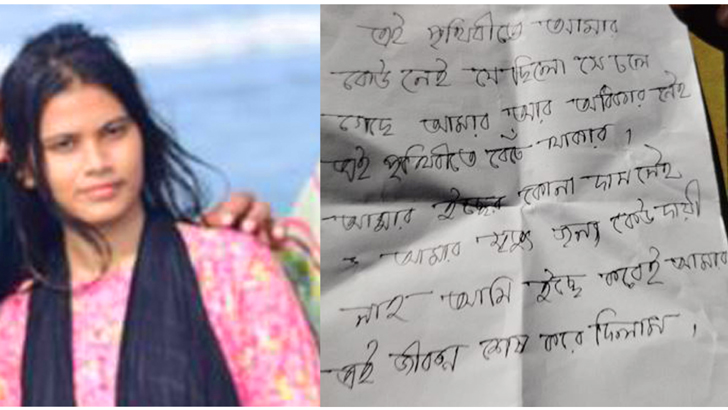 এই পৃথিবীতে আমার
কেউ নেই যে ছিলো সে চলে
গেছে আমার আর অধিকার নেই
এই পৃথিবীতে বেঁচে থাকার।
আমার ইচ্ছের কোনো দাম নেই
আমার মৃত্যুর জন্য কেউ দায়ী
নাই আমি ইচ্ছে করেই আমার
এই জীবন শেষ করে দিলাম।